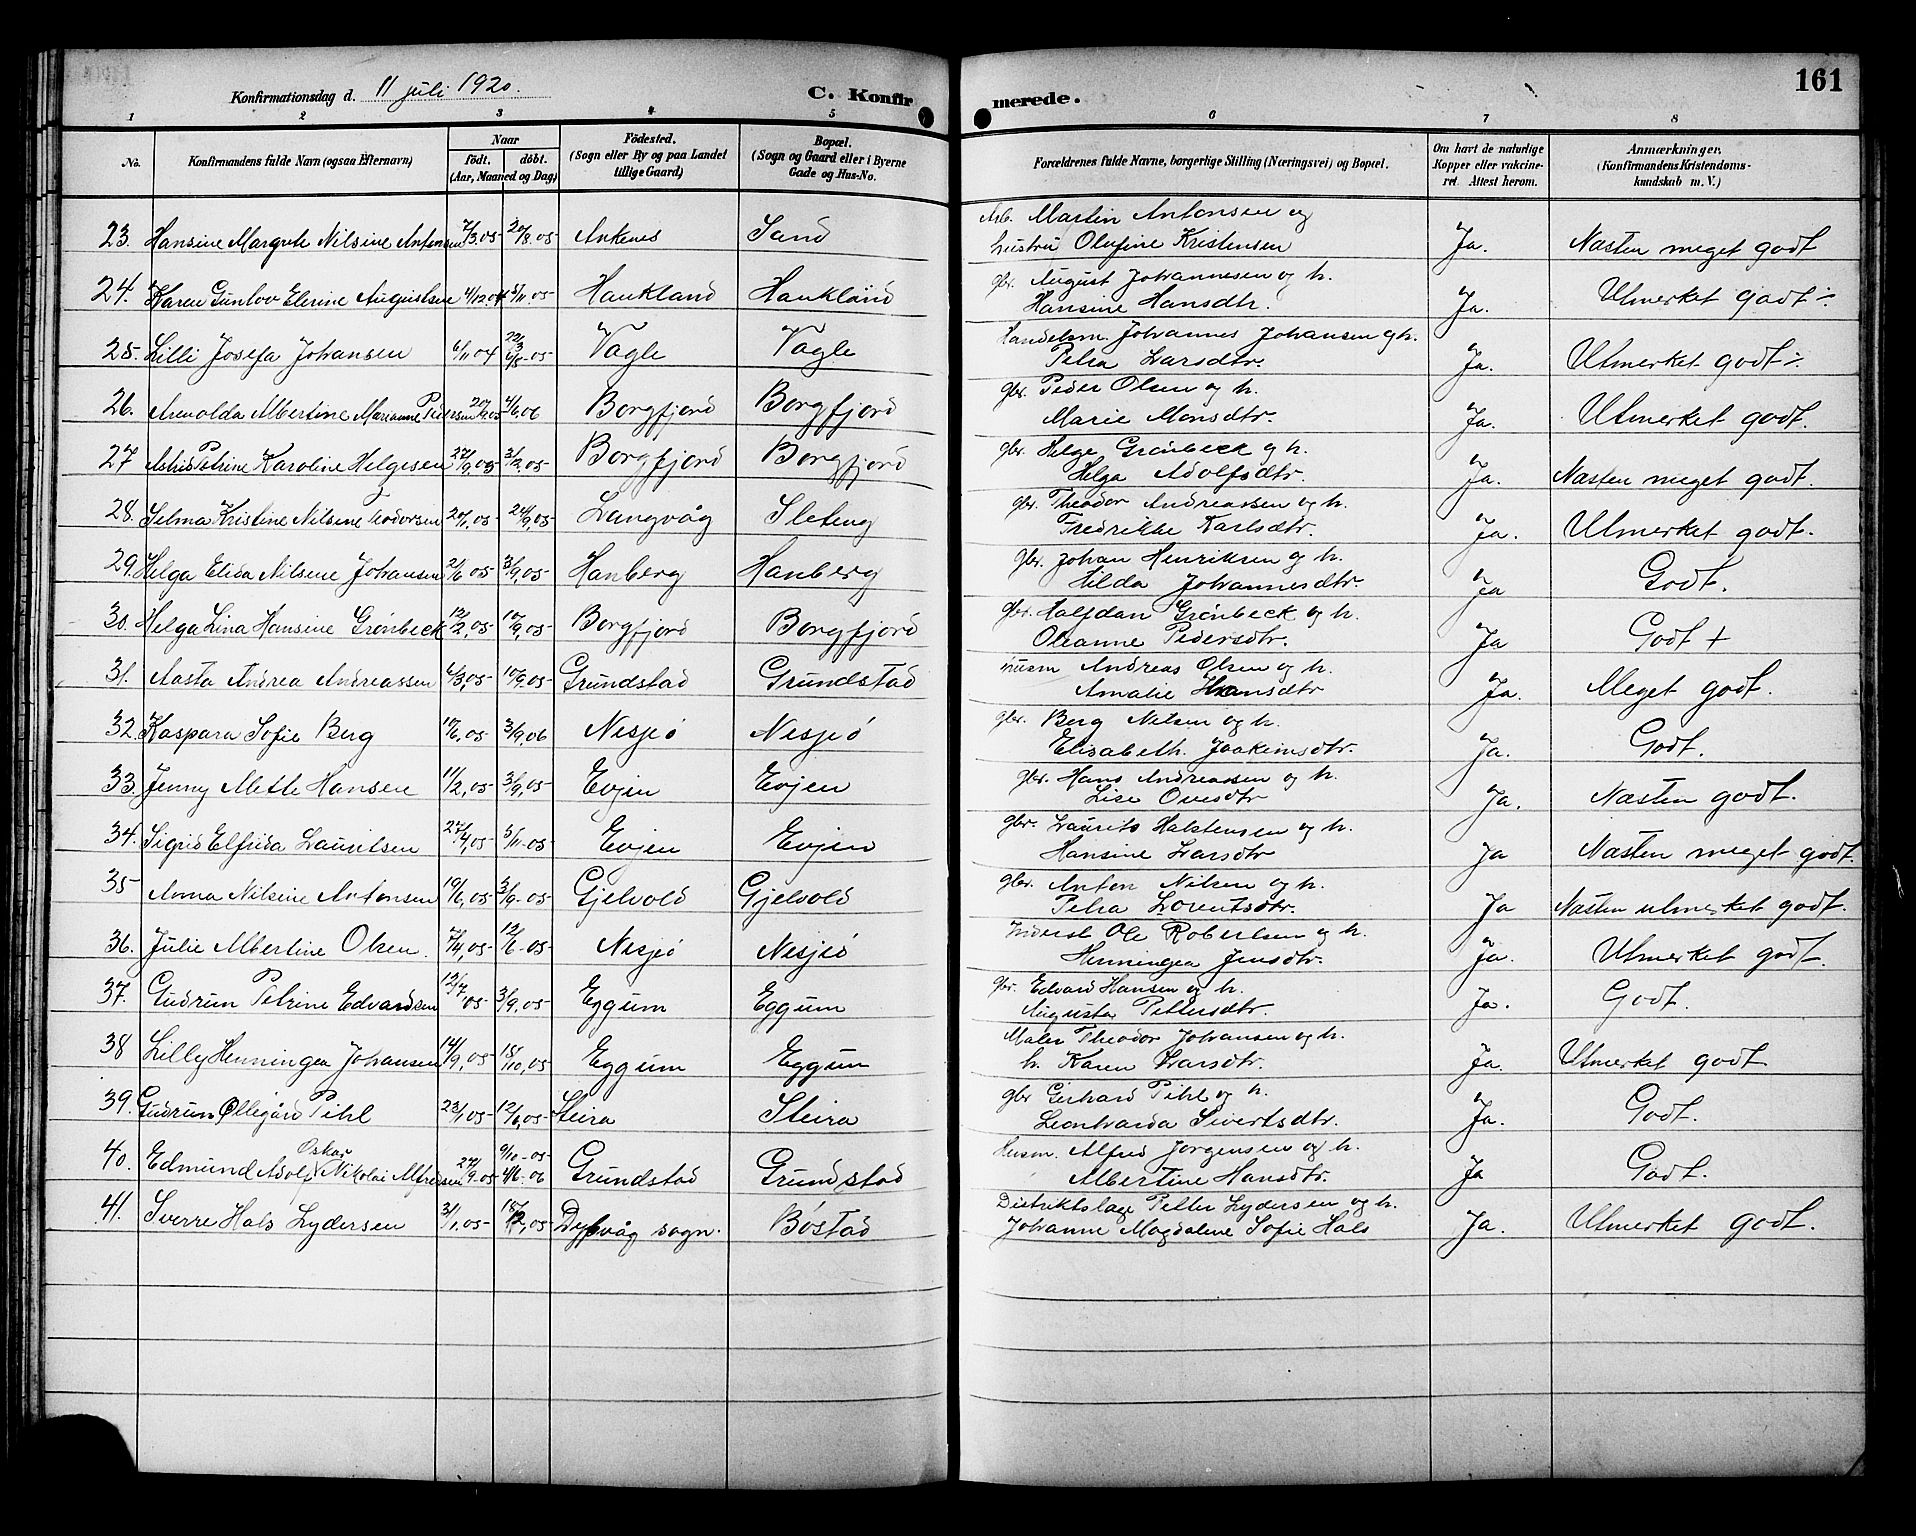 161
Konfirmationsdag d. 11 juli 1920.
C. Konfirmerede.
1 2 3 4 5 6 7 8
No. | Konfirmandens fulde Navn (ogsaa Efternavn) | Naar födt. döbt. (Aar, Maaned og Dag) | Födested. (Sogn eller By og paa Landet tillige Gaard) | Bopæl. (Sogn og Gaard eller i Byerne Gade og Hus-No. | Forældrenes fulde Navne, borgerlige Stilling (Næringsvei) og Bopæl. | Om havt de naturlige Kopper eller vakcineret. Attest herom. | Anmærkninger. (Konfirmandens Kristendomskundskab m. V.)
23. Hansine Margrete Nilsine Antonsen 7/3.05 20/8.05 Ankenes Sand Arb. Martin Antonsen og hustru Olufine Kristensen Ja. Næsten meget godt
24. Karen Gunlov Elerine Augustsen 4/12.04 5/11.05 Haukland Haukland gbr. August Johannesen og h. Hansine Hansdtr. Ja. Utmerket godt ÷
25. Lilli Josefa Johansen 6/11 04 22/3 6/8-05 Vagle Vagle Handelsm Johannes Johansen og h. Petra Larsdtr. Ja. Utmerket godt ÷
26. Arnolda Albertine Marianne Petersen 4/6.06 Borgfjord Borgfjord gbr. Peder Olsen og h. Marie Monsdtr. Ja. Utmerket godt.
27 Astrid Petrine Karoline Helgesen 27/9.05 3/12.05 Borgfjord Borgfjord gbr. Helge Grønbeck og h. Helga Adolfsdtr. Ja. Næsten meget godt.
28. Selma Kristine Nilsine Teodorsen 20/1.05 24/9.05 Langvåg Sleteng gbr. Theodor Andreassen og h. Fredrikke Karlsdtr. Ja. Utmerket godt.
29. Helga Elida Nilsine Johansen 2/6 05 3/9.05 Hanberg Hanberg gbr. Johan Henriksen og h. Hilda Johannesdtr. Ja Godt.
30. Helga Lina Hansine Grønbeck 12/2.05 10/9.05 Borgfjord Borgfjord gbr. Halfdan Grønbeck og h. Oleanne Pedersdtr. Ja Godt +
31. Aasta Andrea Andreassen 6/3.05 10/9.05 Grundstad Grundstad Husm Andreas Olsen og h. Amalie Hansdtr Ja. Meget godt.
32. Kaspara Sofie Berg 17/6.05 3/9.06 Nesjeö Nesjeö gbr. Berg Nilsen og h. Elisabeth. Joakimsdtr. Ja. Godt.
33. Jenny Mette Hansen 11/2.05 3/9.05 Evjen Evjen gbr. Hans Andreassen og h. Lise Ovesdtr Ja. Næsten godt.
34. Sigrid Elfrida Lauritsen 27/4.05 5/11.05 Evjen Evjen gbr. Laurits Halstensen og h. Hansine Larsdtr Ja Næsten meget godt.
35 Anna Nilsine Antonsen 19/6.05 3/9.05 Gjelvold Gjelvold gbr. Anton Nilsen og h. Petra Lorentsdtr. Ja Næsten utmerket godt.
36. Julie Albertine Olsen. 7/4.05 12/6.05 Nesjeö Nesjeö Inderst Ole Robertsen og h. Henningea Jensdtr. Ja. Utmerket godt.
37. Gudrun Petrine Edvardsen 12/7 05 3/9.05 Eggum Eggum gbr. Edvard Hansen og h. Augusta Pettersdtr. Ja. Godt.
38 Lilly Henningea Johansen 14/9.05 15/10.05 Eggum Eggum Maler Theodor Johansen og h. h. Karen Larsdtr. Ja Utmerket godt.
39. Gudrun Øllegård Pihl 23/1 05 12/6.05 Steira Steira gbr Gerhard Pihl og h. Leonharda Sivertsdtr. Ja. Godt.
40. Edmund Adolf Oskar Nikolai Alfredsen 27/9.05 9/10-05 4/6-06 Grundstad Grundstad Husm. Alfred Jørgensen og h. Albertine Hansdtr. Ja Godt.
41. Sverre Hals Lydersen 3/1.05 Dypvåg sogn. Böstad Distriktslæge Petter Lydersen og h. Johanne Magdalene Sofie Hals Ja. Utmerket godt.